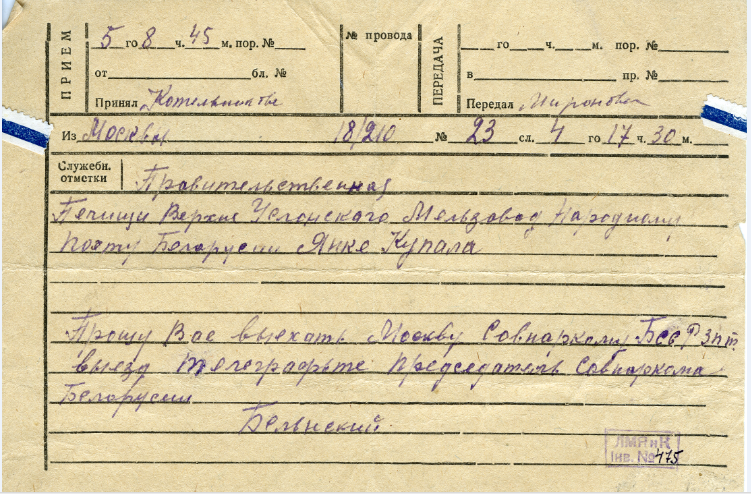 ПРИЕМ
5 го 8 ч. 45 м. пор. №
от бл. №
Принял
№ провода
ПЕРЕДАЧА
го ч. м. пор. №
в пр. №
Передал
Из Москвы 18/210 № 23 сл. 4 го 17 ч. 30 м.
Служебн. отметки
Правительственная
Печищи Верхне Услонского Мельзавод Народному
поэту Белорусии Янке Купала
Прошу Вас выехать Москву Совнаркому БССР зпт.
выезд телеграфьте Председатель Совнаркома
Белорусии
ЛМЯнК
Інв. № 475